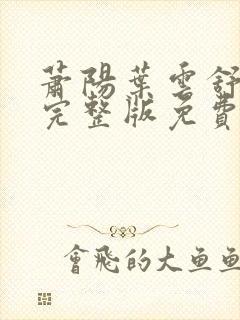 蕭陽葉雲舒
完整版免費
會飛的大魚魚